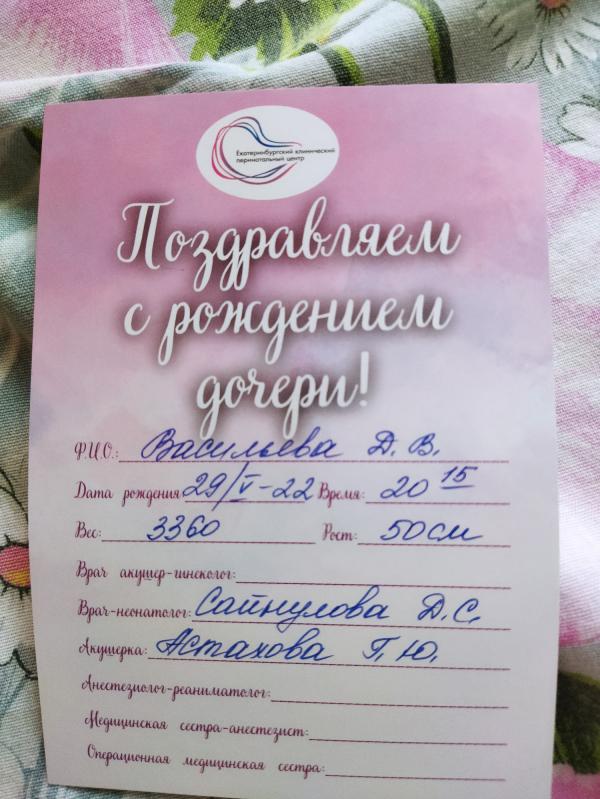 Екатеринбургский клинический
перинатальный центр
Поздравляем
с рождением
дочери!
Ф.И.О.: Васильева Д. В.
Дата рождения 29/V-22 Время: 20 15
Вес: 3360 Рост: 50см
Врач акушер-гинеколог:
Врач-неонатолог: Сайнулова Д.С.
Акушерка: Астахова Г.Ю.
Анестезиолог-реаниматолог:
Медицинская сестра-анестезист:
Операционная медицинская сестра: